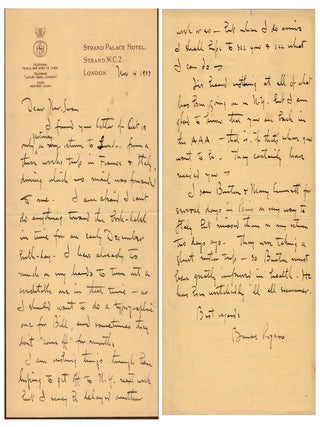 STRAND PALACE HOTEL,
STRAND, W.C.2
LONDON.
Nov 4 1933
Dear Mrs. Swan
I found your letter of Oct 12
only on my return to London from a
three weeks trip in France & Italy,
during which no mail was forwarded
to me. I am afraid I can't
do anything toward the book-label
in time for an early December
birth-day. I have already too
much on my hands to turn out a
creditable one in that time — as
I should want to do a typographic
one for Bill, and sometimes they
don't "come off" for months
I am rushing things through here
hoping to get off to N.Y. next week
but I may be delayed another
week or so — But when I do arrive
I shall hope to see you & see what
I can do —
I've heard nothing at all of what
has been going on in N.Y. but I am
glad to learn that you are back in
the AAA — that is, if that's where you
want to be. They certainly have
need you —
I saw Burton & Mary himself for
several days in Paris on my way to
Italy But missed them on my return
two days ago. They were taking a
short motor trip — so Burton must
have greatly improved in health. He
had been wretchedly ill all summer.
Best regards
Bruce Rogers